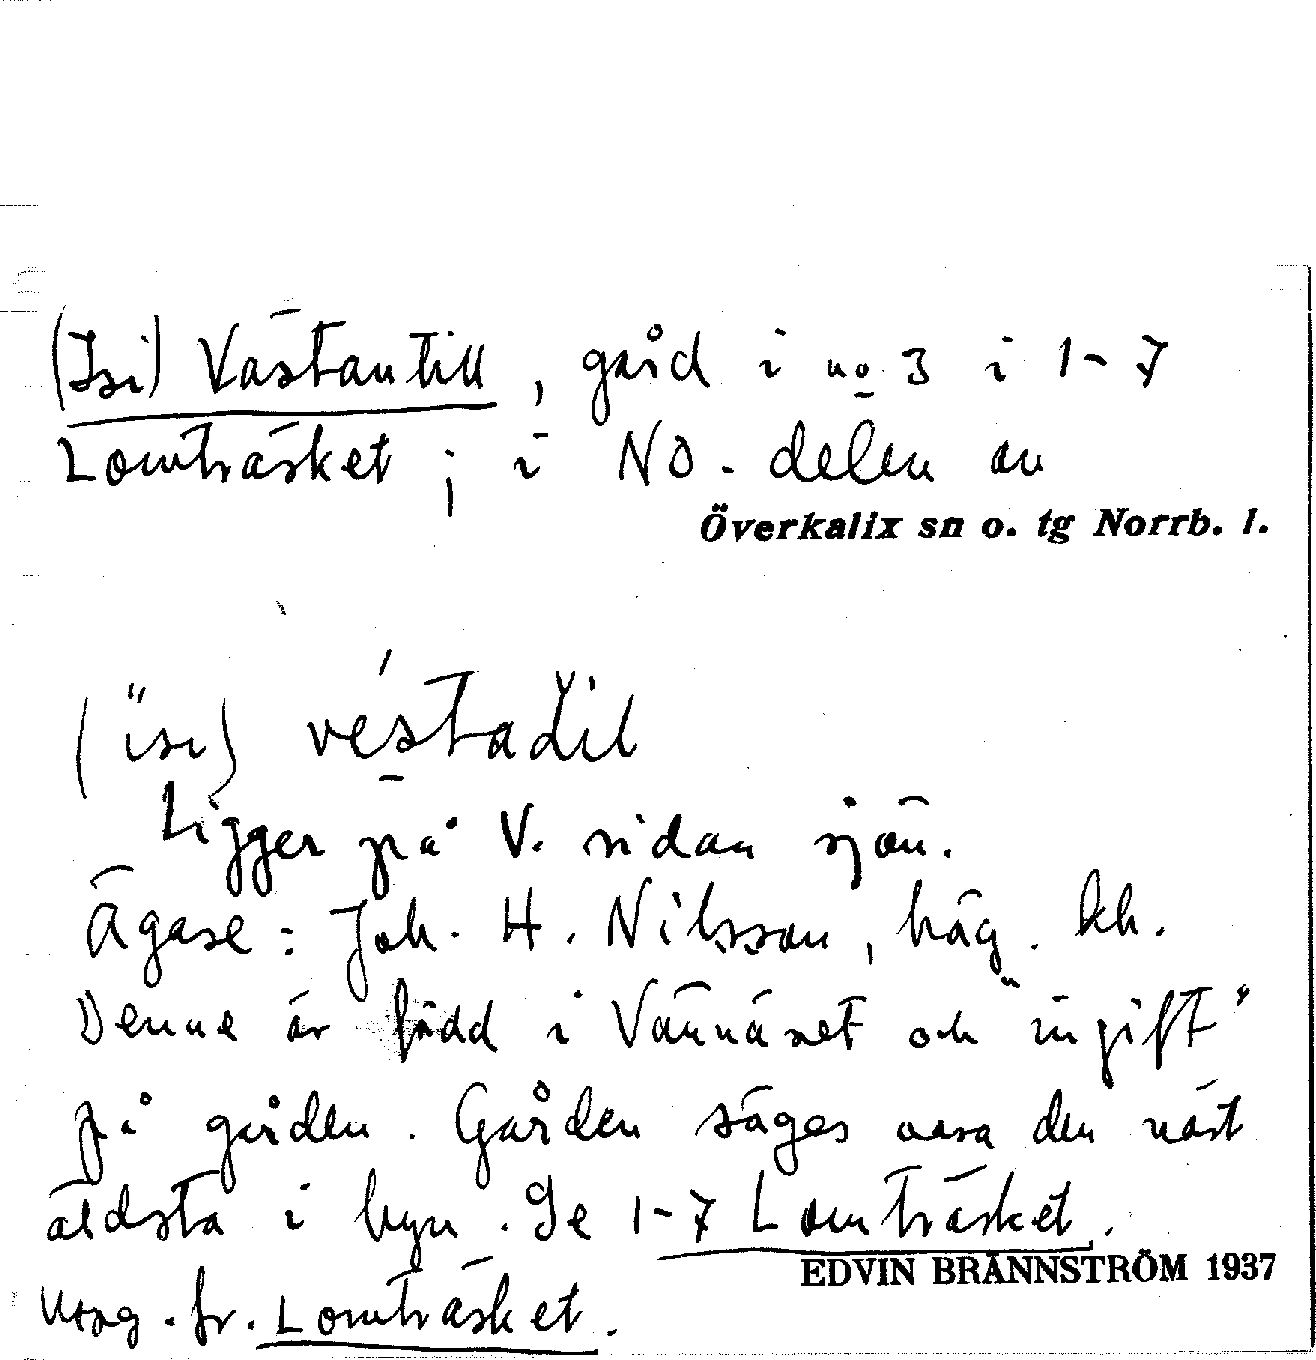 (Isi) Västantill, gård i no 3 i 1-7
Lomträsket; i NO-delen av
Överkalix sn o. tg Norrb. l.
Ligger på V. sidan sjön.
Ägare: Joh. H. Nilsson, häg. kh.
Denne är född i Vännäset och "ingift"
på gården. Gården säges vara den näst
äldsta i byn. Se 1-7 Lomträsket.
EDVIN BRÄNNSTRÖM 1937
Utog. fr. Lomträsket.